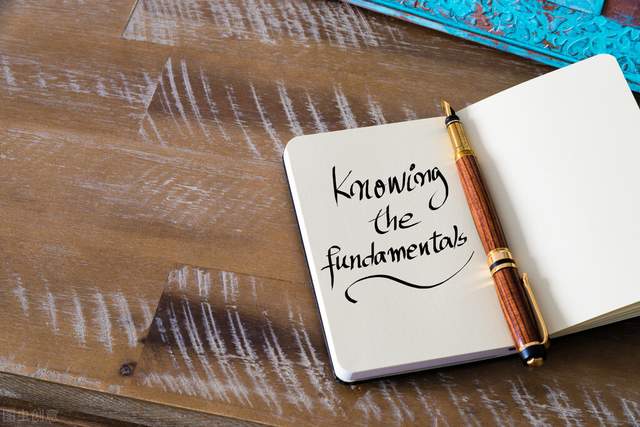 Knowing
the
fundamentals